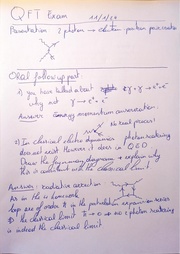 QFT Exam
Presentation 2 photon → electron positron pair creation
Oral follow up part
1) you have talked about γ+γ → e⁺e⁻
why not γ → e⁺e⁻
Answer: Energy momentum conservation.
No real process!
2) In classical electro dynamics photon scattering
does not exist. However it does in QED
Draw the Feynman diagrams + explain why
this is consistent with the classical limit
Answer: radiative correction
As in the homework
loops are of order ħ in the perturbation expansion across
the classical limit ħ → 0 ⇒ no photon scattering
in the classical limit